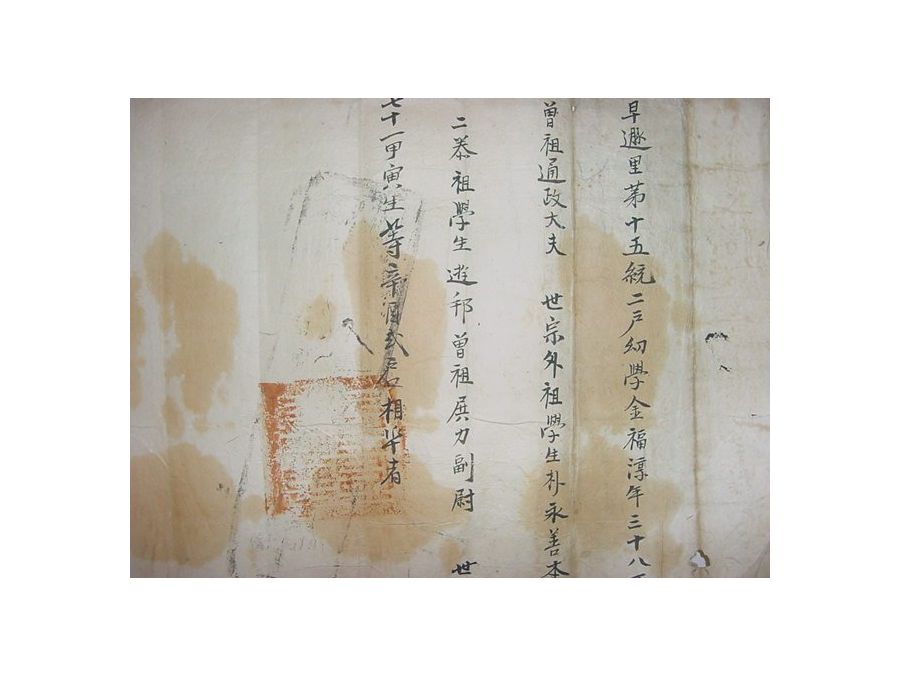 早遯里苐十五統二戶幼學金福淳年三十八
曾祖通政大夫 世宗外祖學生朴永善本
二泰祖學生遊邦曾祖展力副尉 世
七十一甲寅生等辛酉式戶相準者